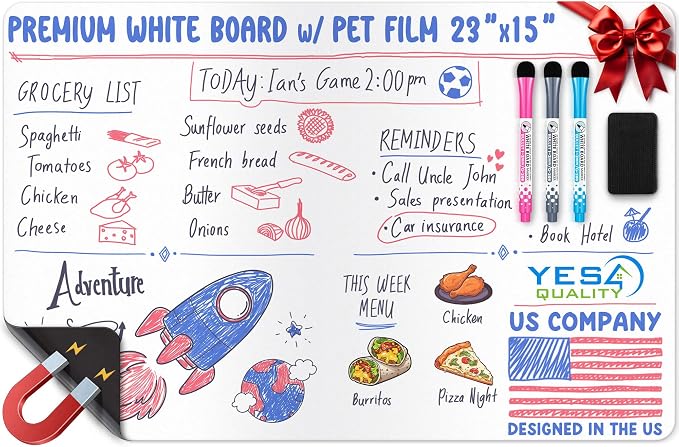 PREMIUM WHITE BOARD w/ PET FILM 23"x15"
TODAY: Ian's Game 2:00pm
GROCERY LIST
Spaghetti
Tomatoes
Chicken
Cheese
Sunflower seeds
French bread
Butter
Onions
REMINDERS
• Call Uncle John
• Sales presentation
• Car insurance
• Book Hotel
WHITE BOARD
WHITE BOARD
WHITE BOARD
Adventure
THIS WEEK
MENU
Chicken
Burritos
Pizza Night
YES4
QUALITY
US COMPANY
DESIGNED IN THE US